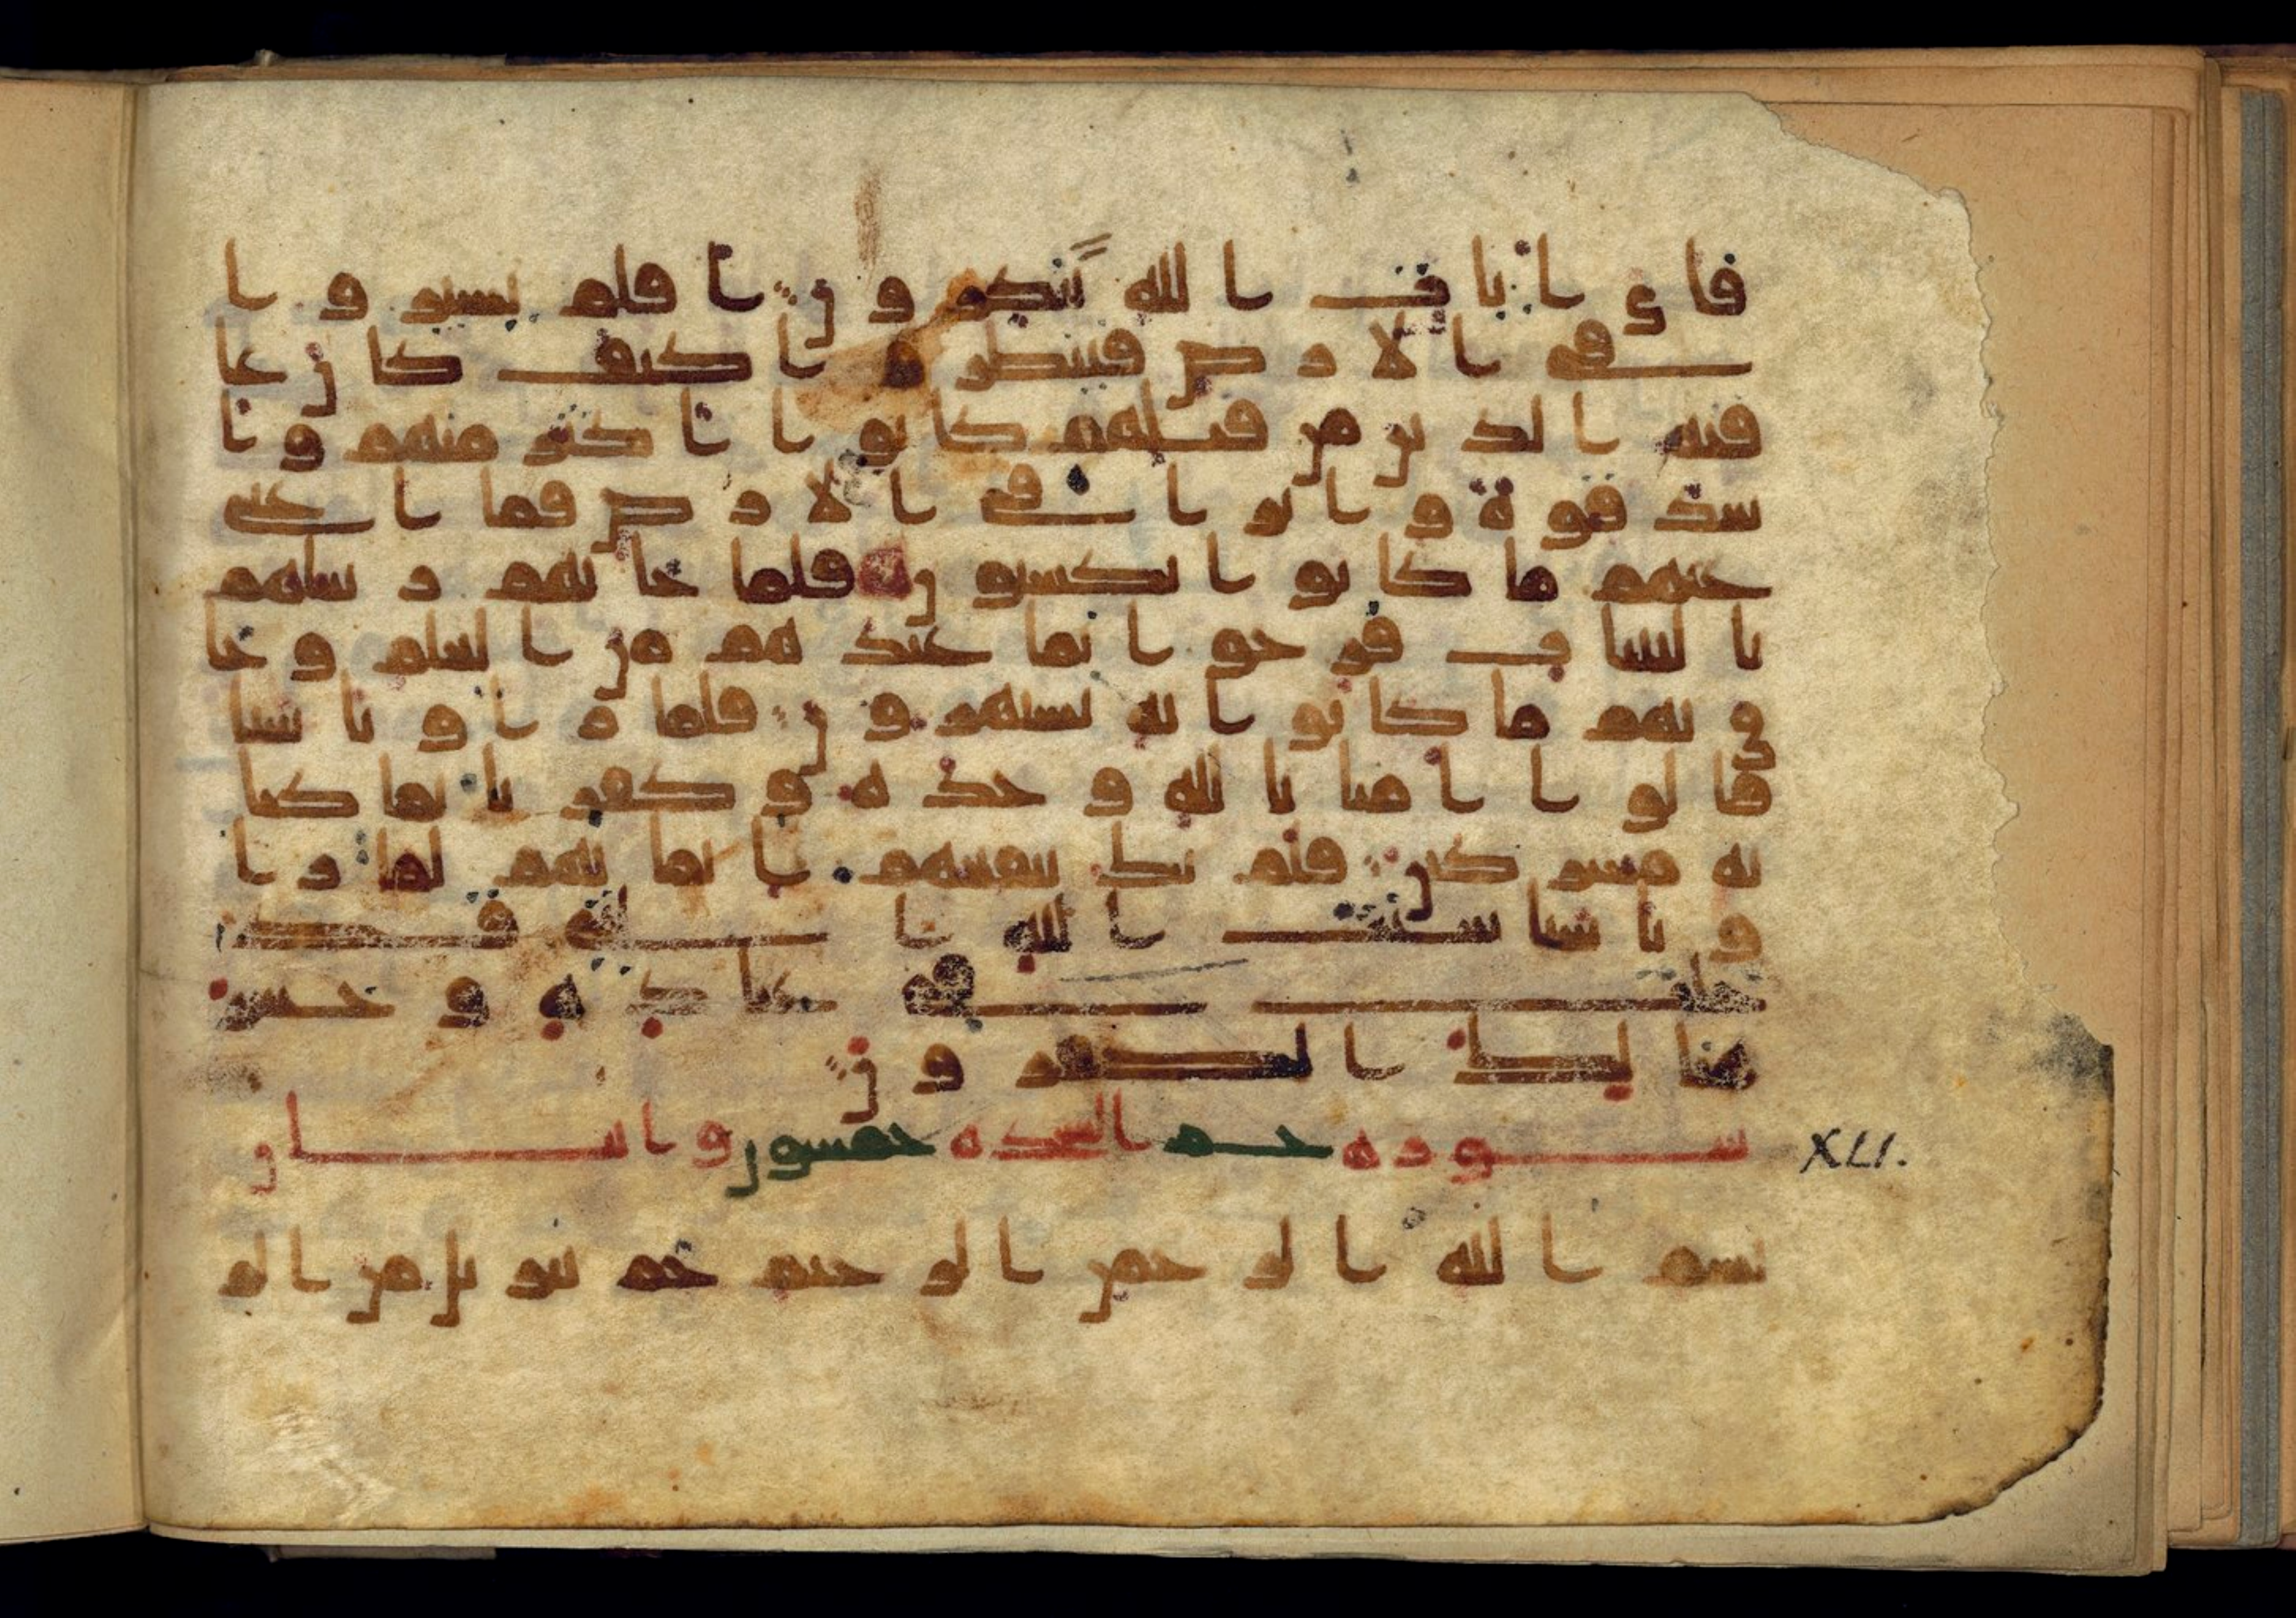 فاي ايات الله تنكرون افلم يسيروا
في الارض فينظروا كيف كان عا
قبة الذين من قبلهم كانوا اكثر منهم وا
شد قوة واثرا في الارض فما اغنى
عنهم ما كانوا يكسبون فلما جاتهم رسلهم
بالبينات فرحوا بما عندهم من العلم وحا
ق بهم ما كانوا به يستهزون فلما راوا باسنا
قالوا امنا بالله وحده وكفرنا بما كنا
به مشركين فلم يك ينفعهم ايمانهم لما را
وا باسنا سنت الله التي قد
خلت في عباده وخسر
هنالك الكفرون
سورة حم السجدة خمسون واثنتان
XLI.
بسم الله الرحمن الرحيم حم تنزيل من الر